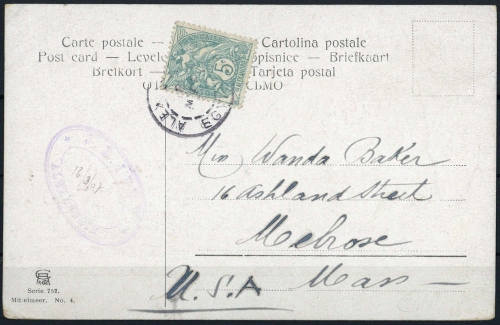 Carte postale — Cartolina postale
Post card — Levele opisnice — Briefkaart
Brefkort Tarjeta postal
5
ALEX
Miss Wanda Baker
16 Ashland Street
Melrose
Mass
U.S.A
Serie 752.
Mittelmeer. No. 4.